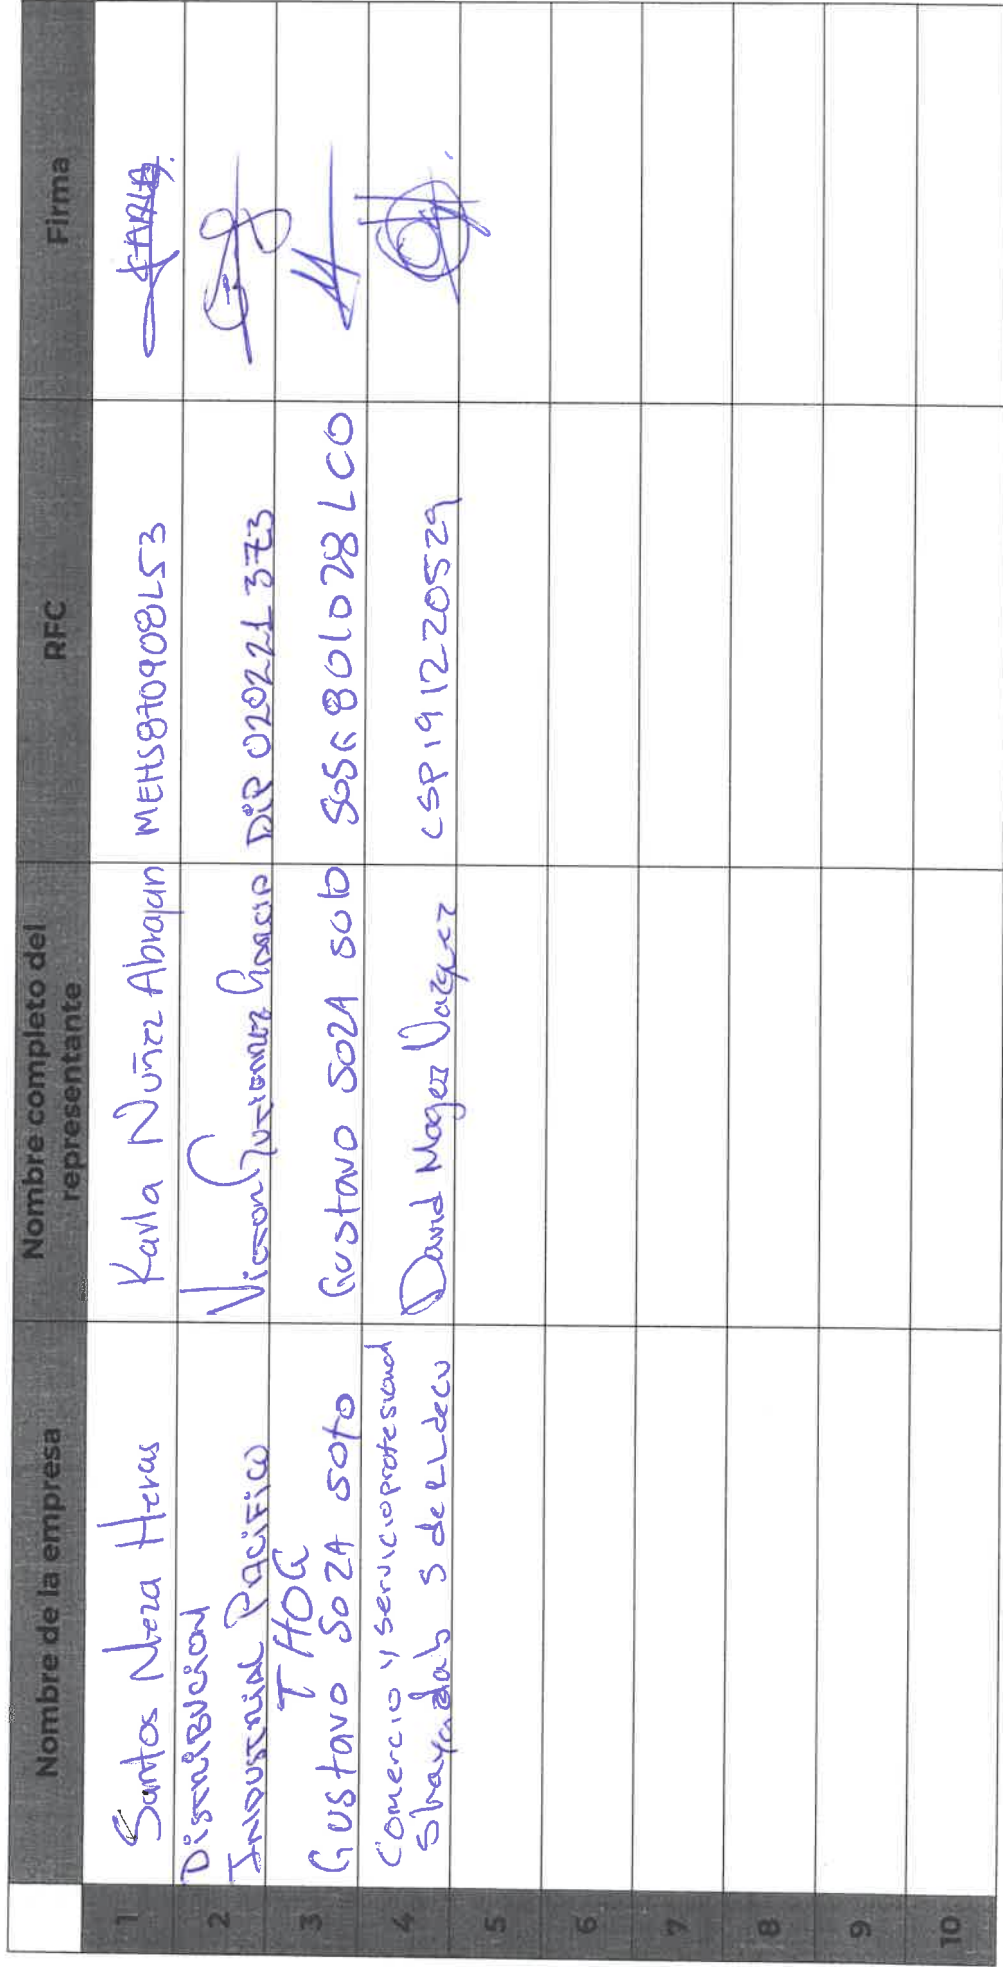 Nombre de la empresa
Nombre completo del
representante
RFC
Firma
1
Santos Meza Heras
Karla Núñez Abrajan
MEHS870908L53
KARLA
2
Distribucion
Industrial Pacifico
Victor Gutierrez Garcia
DIP 020221 373
3
THOG
Gustavo Soza Soto
Gustavo Soza Soto
SOSG801028LC0
4
Comercio y servicio profesional
S de RL de CV
David Vazquez
CSP191220529
5
6
7
8
9
10